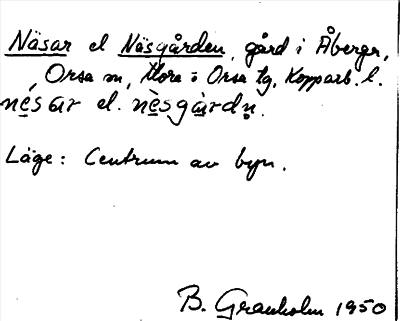 Näsar el Näsgården, gård i Åberga,
Orsa sn, Mora o Orsa tg, Kopparb. l.
nésar el. nèsgàrdn.
Läge: Centrum av byn.
B. Granholm 1950